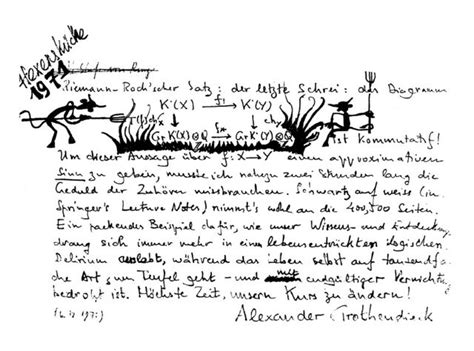 Hexenküche 1971
Riemann-Roch'scher Satz: der letzte Schrei: das Diagramm
K˙(X) f! K˙(Y)
T(f)chx f* chy
Gr K˙(X)⊗Q → Gr K˙(Y)⊗Q
ist kommutatif!
Um dieser Aussage über f: X→Y einen approximativen
Sinn zu geben, musste ich nahezu zwei Stunden lang die
Geduld der Zuhörer missbrauchen. Schwartz auf weiss (in
Springer's Lecture Notes) nimmt's wohl an die 400, 500 Seiten.
Ein packendes Beispiel dafür, wie unser Wissens- und Entdeckungs
drang sich immer mehr in einem lebensentrückten logischen
Delirium auslebt, während das Leben selbst auf tausendfa
che Art zum Teufel geht – und mit endgültiger Vernichtung
bedroht ist. Höchste Zeit, unsern Kurs zu ändern!
Alexander Grothendieck